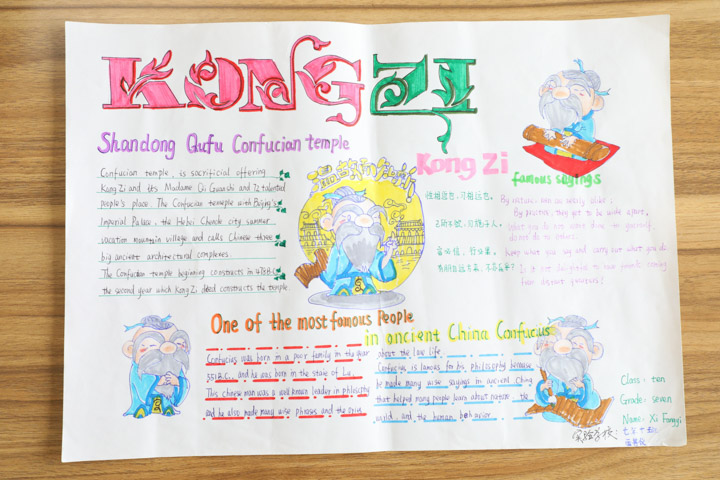 KONG ZI
Shandong Qufu Confucian temple
Confucian temple, is sacrificial offering
Kong Zi and its Madame Qi Guanshi and 72 talented
people's place. The Confucian temeple with Beijing's
Imperial Palace, the Hebei Chende city summer
vacation mountain village and calls Chinese three
big ancient architectural complexes.
The Confucian temple beginning constructs in 478B.C
the second year which Kong Zi died constructs the temple
Kong Zi
famous sayings
性相近也，习相远也。
己所不欲，勿施于人。
言必信，行必果。
有朋自远方来，不亦乐乎？
By nature, men are nearly alike:
By practice, they get to be wide apart.
What you do not want done to yourself,
do not do to others.
Keep what you say and carry out what you do
Is it not delightful to have friends coming
from distant quarters!
One of the most famous People
in ancient China Confucius
Confucius was born in a poor family in the year
551 B.C., and he was born in the state of Lu.
This chinese man was a well known leader in philosithy
and he also made many wise phrases and the
about the law life.
Confucius is famous for his philosophy because
he made many wise sayings in ancient China
that helped many people learn about nature, the
world, and the human behavior.
Class: ten
Grade: seven
Name: Xi Fangyi
实验学校：七年十班